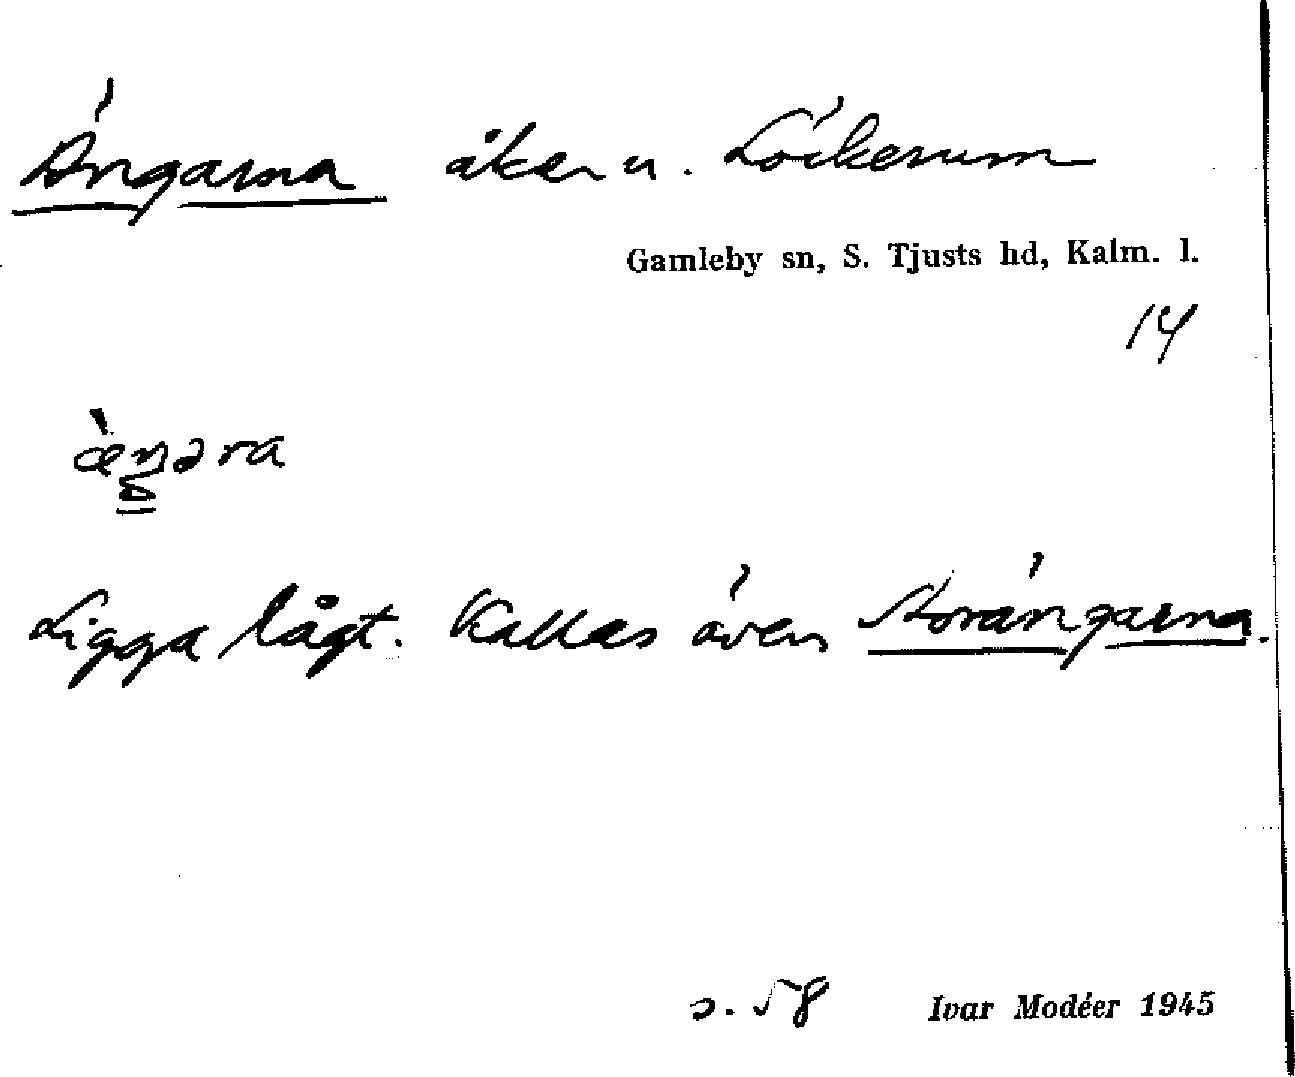 Ängarna åker u. Löckerum
Gamleby sn, S. Tjusts hd, Kalm. l.
14
æ̀ŋəra
Ligga lågt. Kallas även Storängarna.
s. 58 Ivar Modéer 1945